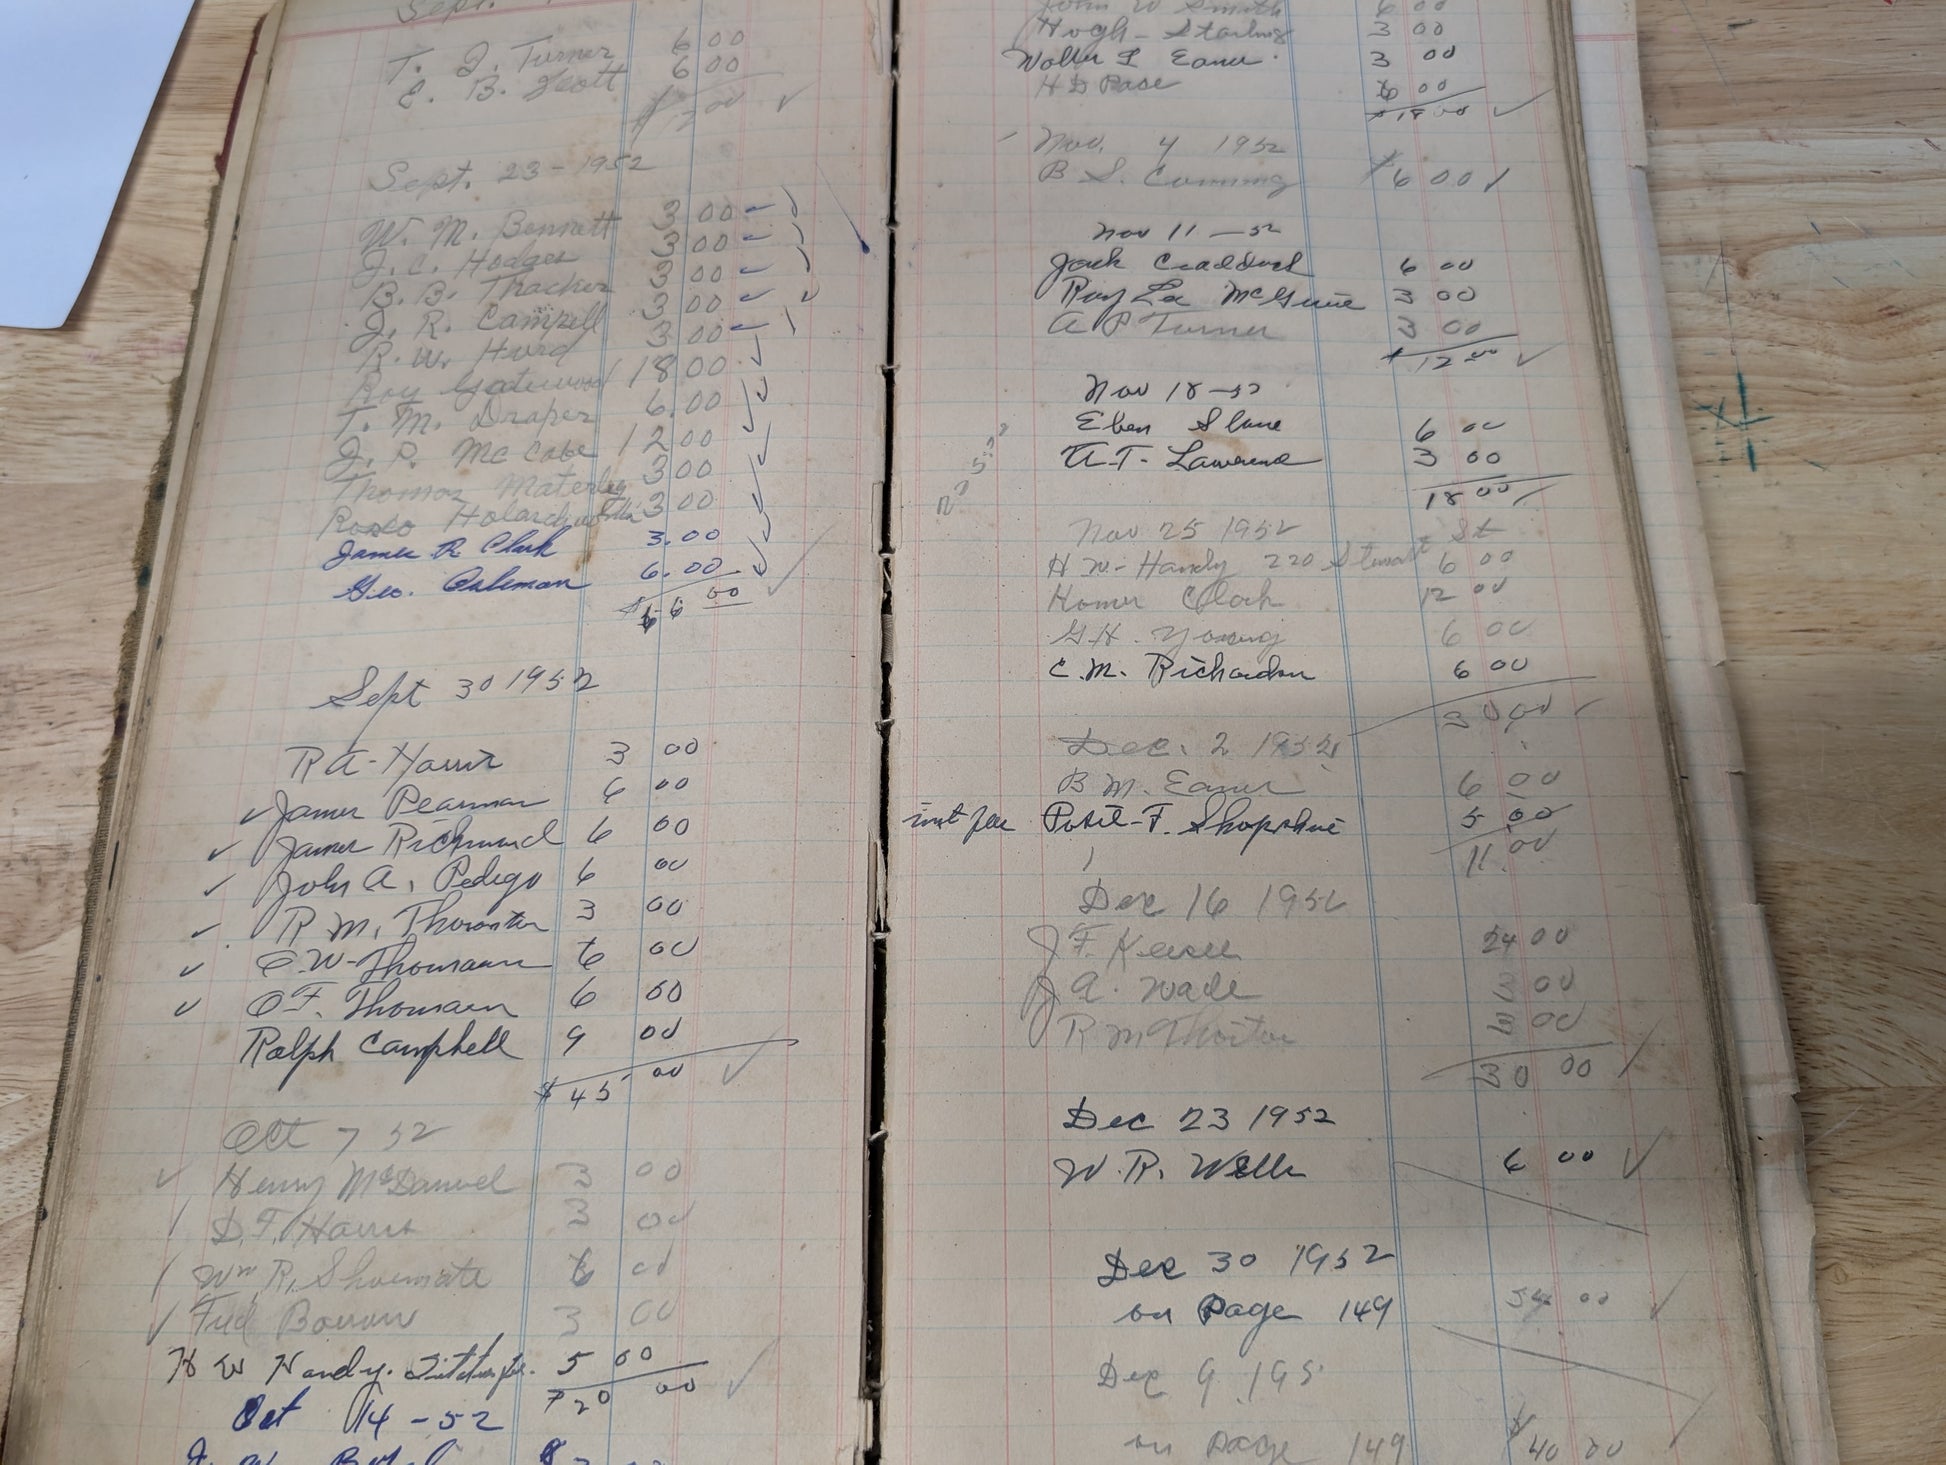 Sept.
T. J. Turner 6 00
E. B. Scott 6 00
$12 00 ✓
Sept. 23-1952
W. M. Bennett 3 00
J. C. Hodges 3 00
B. B. Thacker 3 00
J. R. Campell 3 00
R. W. Hurd 3 00
Roy Gatewood 18 00
T. M. Draper 6.00
J. P. McCabe 12 00
Thomas 3 00
3 00
James R Clark 3.00
Geo. Coleman 6.00
$66 00
Sept 30 1952
R A- Harris 3 00
James Pearman 6 00
James Richmond 6 00
John A. Pedigo 6 00
R M. Thornton 3 00
C. W- Thomasson 6 00
O F. Thomasson 6 00
Ralph Campbell 9 00
$45 00
Oct 7 52
Henry McDaniel 3 00
D. F. Harris 3 00
Wm R. Shumate 6 00
Fred Bowan 3 00
H W Handy. 5 00
$20 00
Oct 14-52
John W Smith 6 00
Hugh- Starling 3 00
Walter L Eanes 3 00
H D Pase 6 00
$18 00
Nov. 4 1952
B S. Cumming $6 00
Nov 11-52
Jack Craddock 6 00
Roy Lee McGuire 3 00
A P Turner 3 00
$12 00
Nov 18-52
Eben Slane 6 00
A. T. Lawrence 3 00
18 00
Nov 25 1952
H W- Handy 220 Stewart St 6 00
Homer Clark 12 00
G. H. Young 6 00
C. M. Richardson 6 00
30 00
Dec. 2 1952
B M. Eanes 6 00
init fee F. Shopshire 5 00
11 00
Dec 16 1952
J F. Keesee 24 00
J A. Wade 3 00
R M Thorton 3 00
30 00
Dec 23 1952
W. R. Wells 6 00
Dec 30 1952
on Page 149 54 00
Dec 9 195
on page 149 $40 00